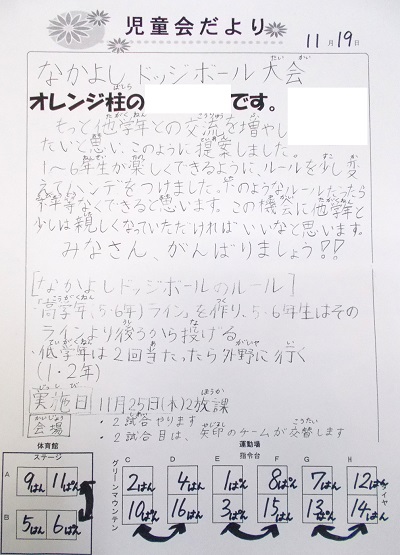 児童会だより
11月19日
なかよしドッジボール大会
オレンジ柱の です。
もっと他学年との交流を増やし
たいと思い、このように提案しました。
1〜6年生が楽しくできるように、ルールを少し変
えてハンデをつけました。このようなルールだったら
平等なくできると思います。この機会に他学年と
少しは親しくなっていただければいいなと思います。
みなさん、がんばりましょう!!
[なかよしドッジボールのルール]
・「高学年(5・6年)ライン」を作り、5・6年生はその
ラインより後ろから投げる。
・低学年は2回当たったら外野に行く
(1・2年)
実施日 11月25日(木)2放課
会場
・2試合やります
・2試合目は、矢印のチームが交替します
体育館
ステージ
A 9はん 11ぱん
B 5はん 6ぱん
運動場
指令台
グリーンマウンテン
C D E F G H
2はん 4はん 1ぱん 8ぱん 7はん 12はん
10ぱん 16ぱん 3ぱん 15はん 13ぱん 14はん
タイヤ